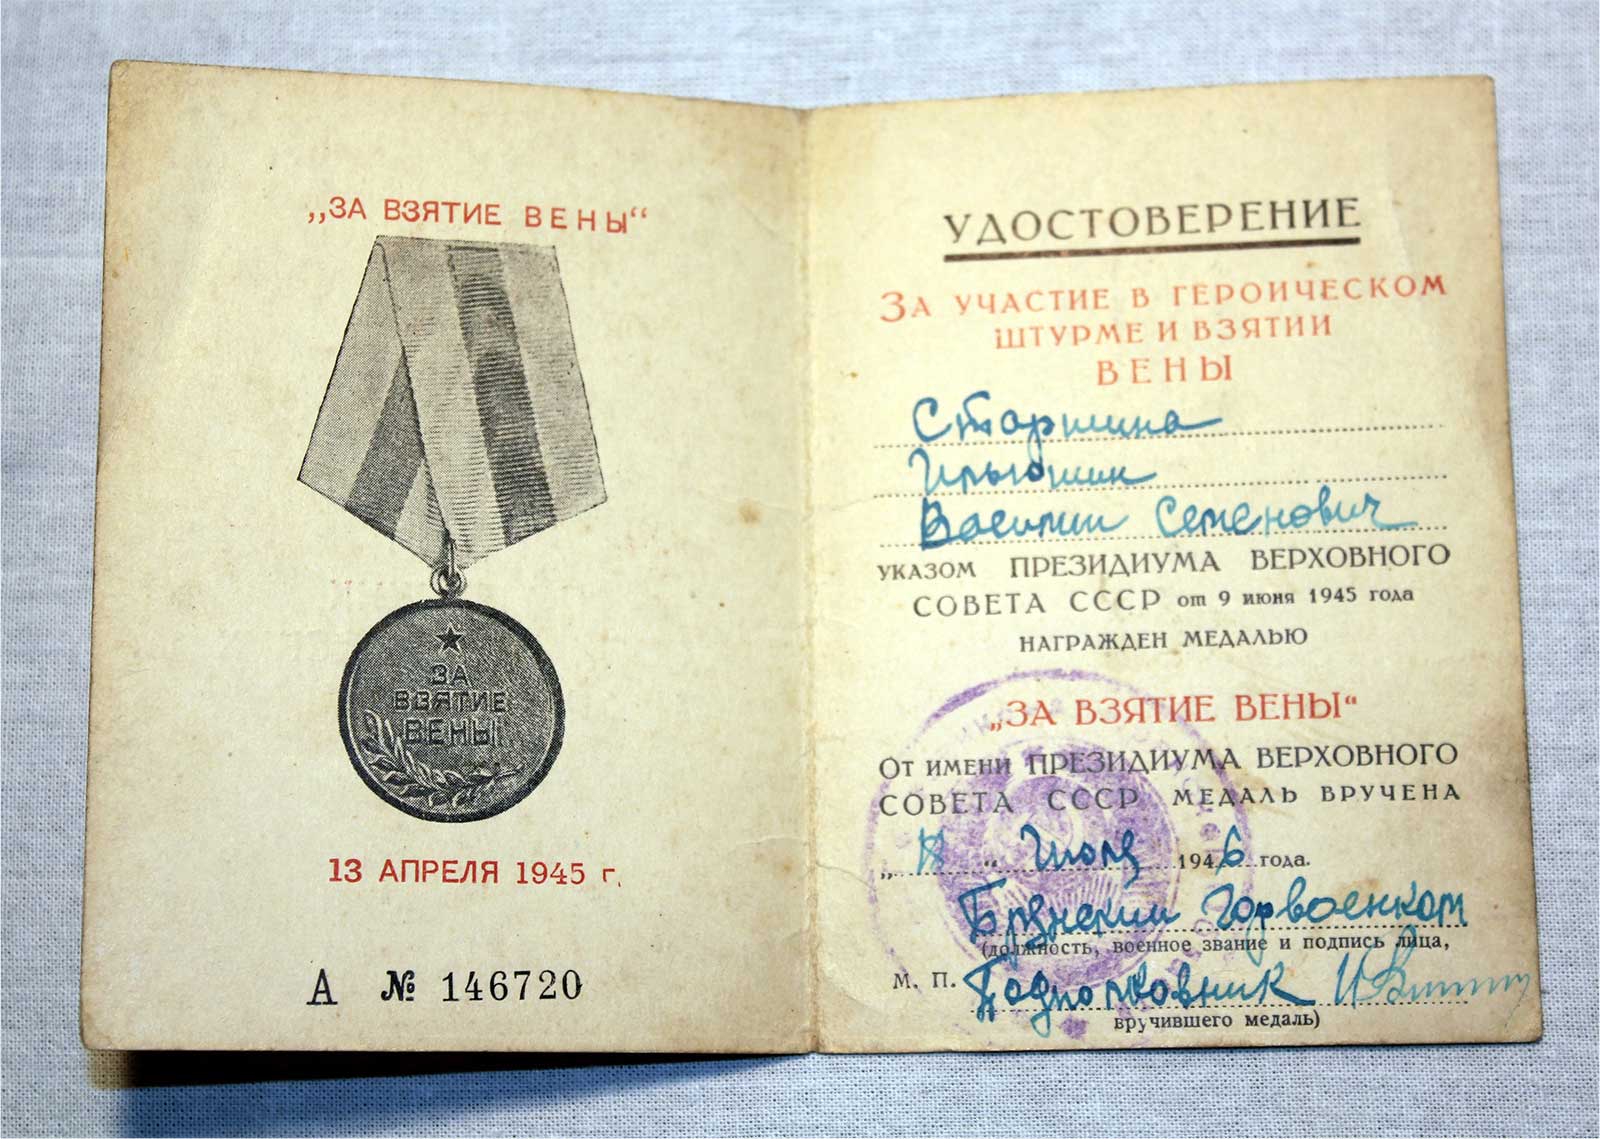 „ЗА ВЗЯТИЕ ВЕНЫ“
ЗА
ВЗЯТИЕ
ВЕНЫ
13 АПРЕЛЯ 1945 г.
А № 146720
УДОСТОВЕРЕНИЕ
ЗА УЧАСТИЕ В ГЕРОИЧЕСКОМ
ШТУРМЕ И ВЗЯТИИ
ВЕНЫ
Старшина
Илюшин
Василий Семенович
УКАЗОМ ПРЕЗИДИУМА ВЕРХОВНОГО
СОВЕТА СССР от 9 июня 1945 года
НАГРАЖДЕН МЕДАЛЬЮ
„ЗА ВЗЯТИЕ ВЕНЫ“
ОТ ИМЕНИ ПРЕЗИДИУМА ВЕРХОВНОГО
СОВЕТА СССР МЕДАЛЬ ВРУЧЕНА
„ “ Июля 1946 года.
горвоенком
(должность, военное звание и подпись лица,
М. П. Подполковник
вручившего медаль)